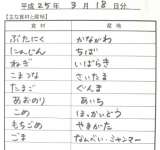 平成25年 3月 18日分
【主な食材と産地】
食材 産地
ぶたにく かながわ
にんじん ちば
ねぎ いばらき
こまつな さいたま
たまご ぐんま
あおのり あいち
こめ ほっかいどう
もちごめ やまがた
ごま なんべい・ミャンマー